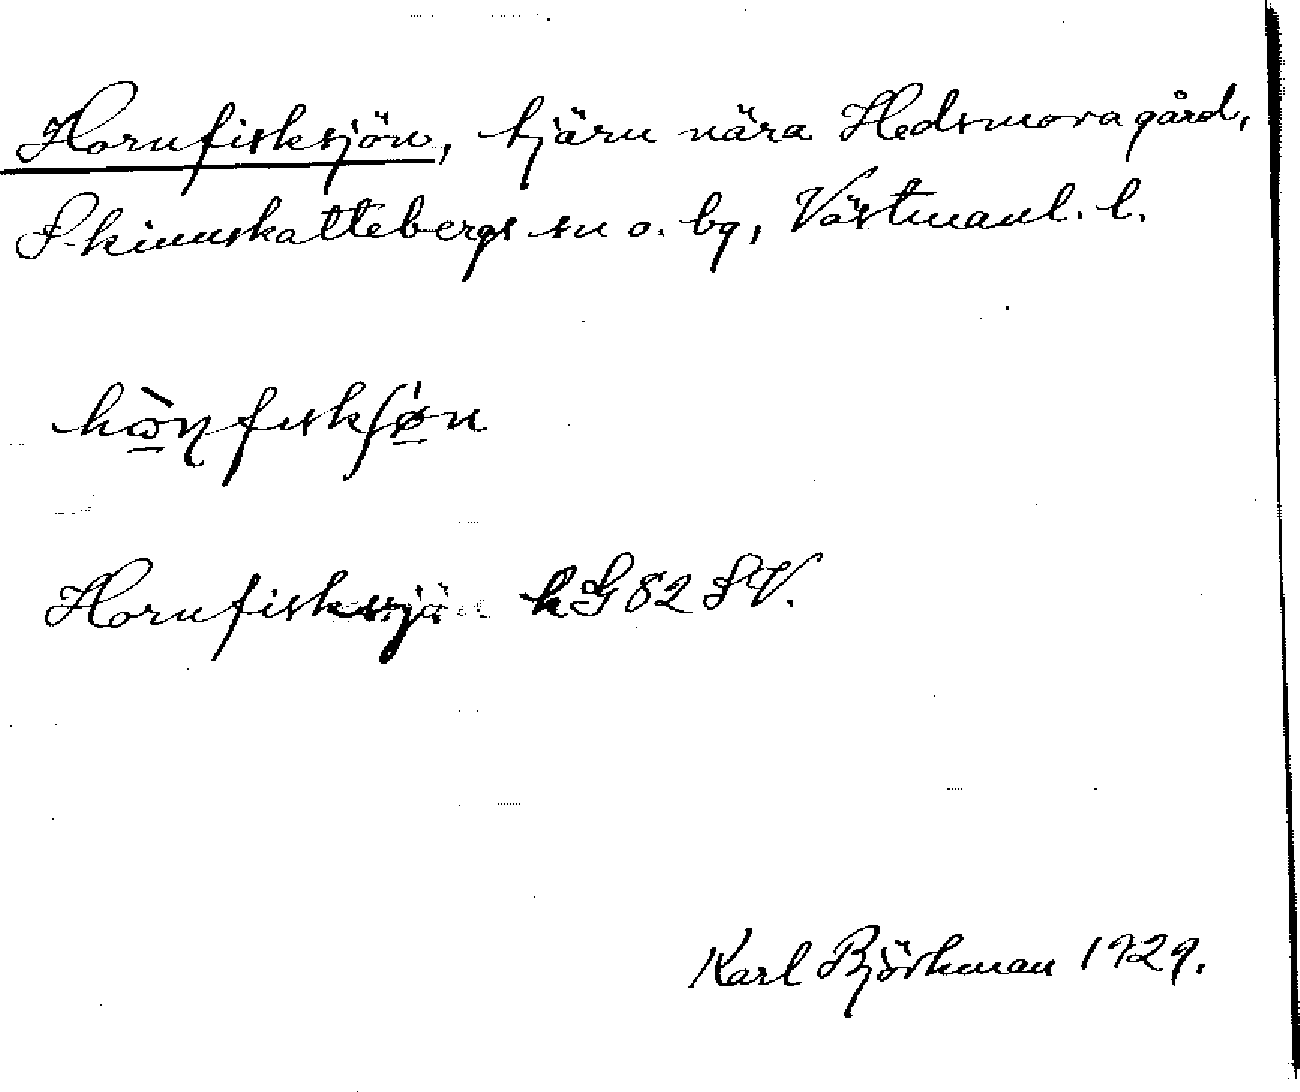 Hornfisksjön, tjärn nära Hedsmora gård,
Skinnskattebergs sn o. bg, Västmanl. l.
hò̱ɳfiskʃǿ̱n
Hornfisksjön kG82SV.
Karl Björkman 1929.